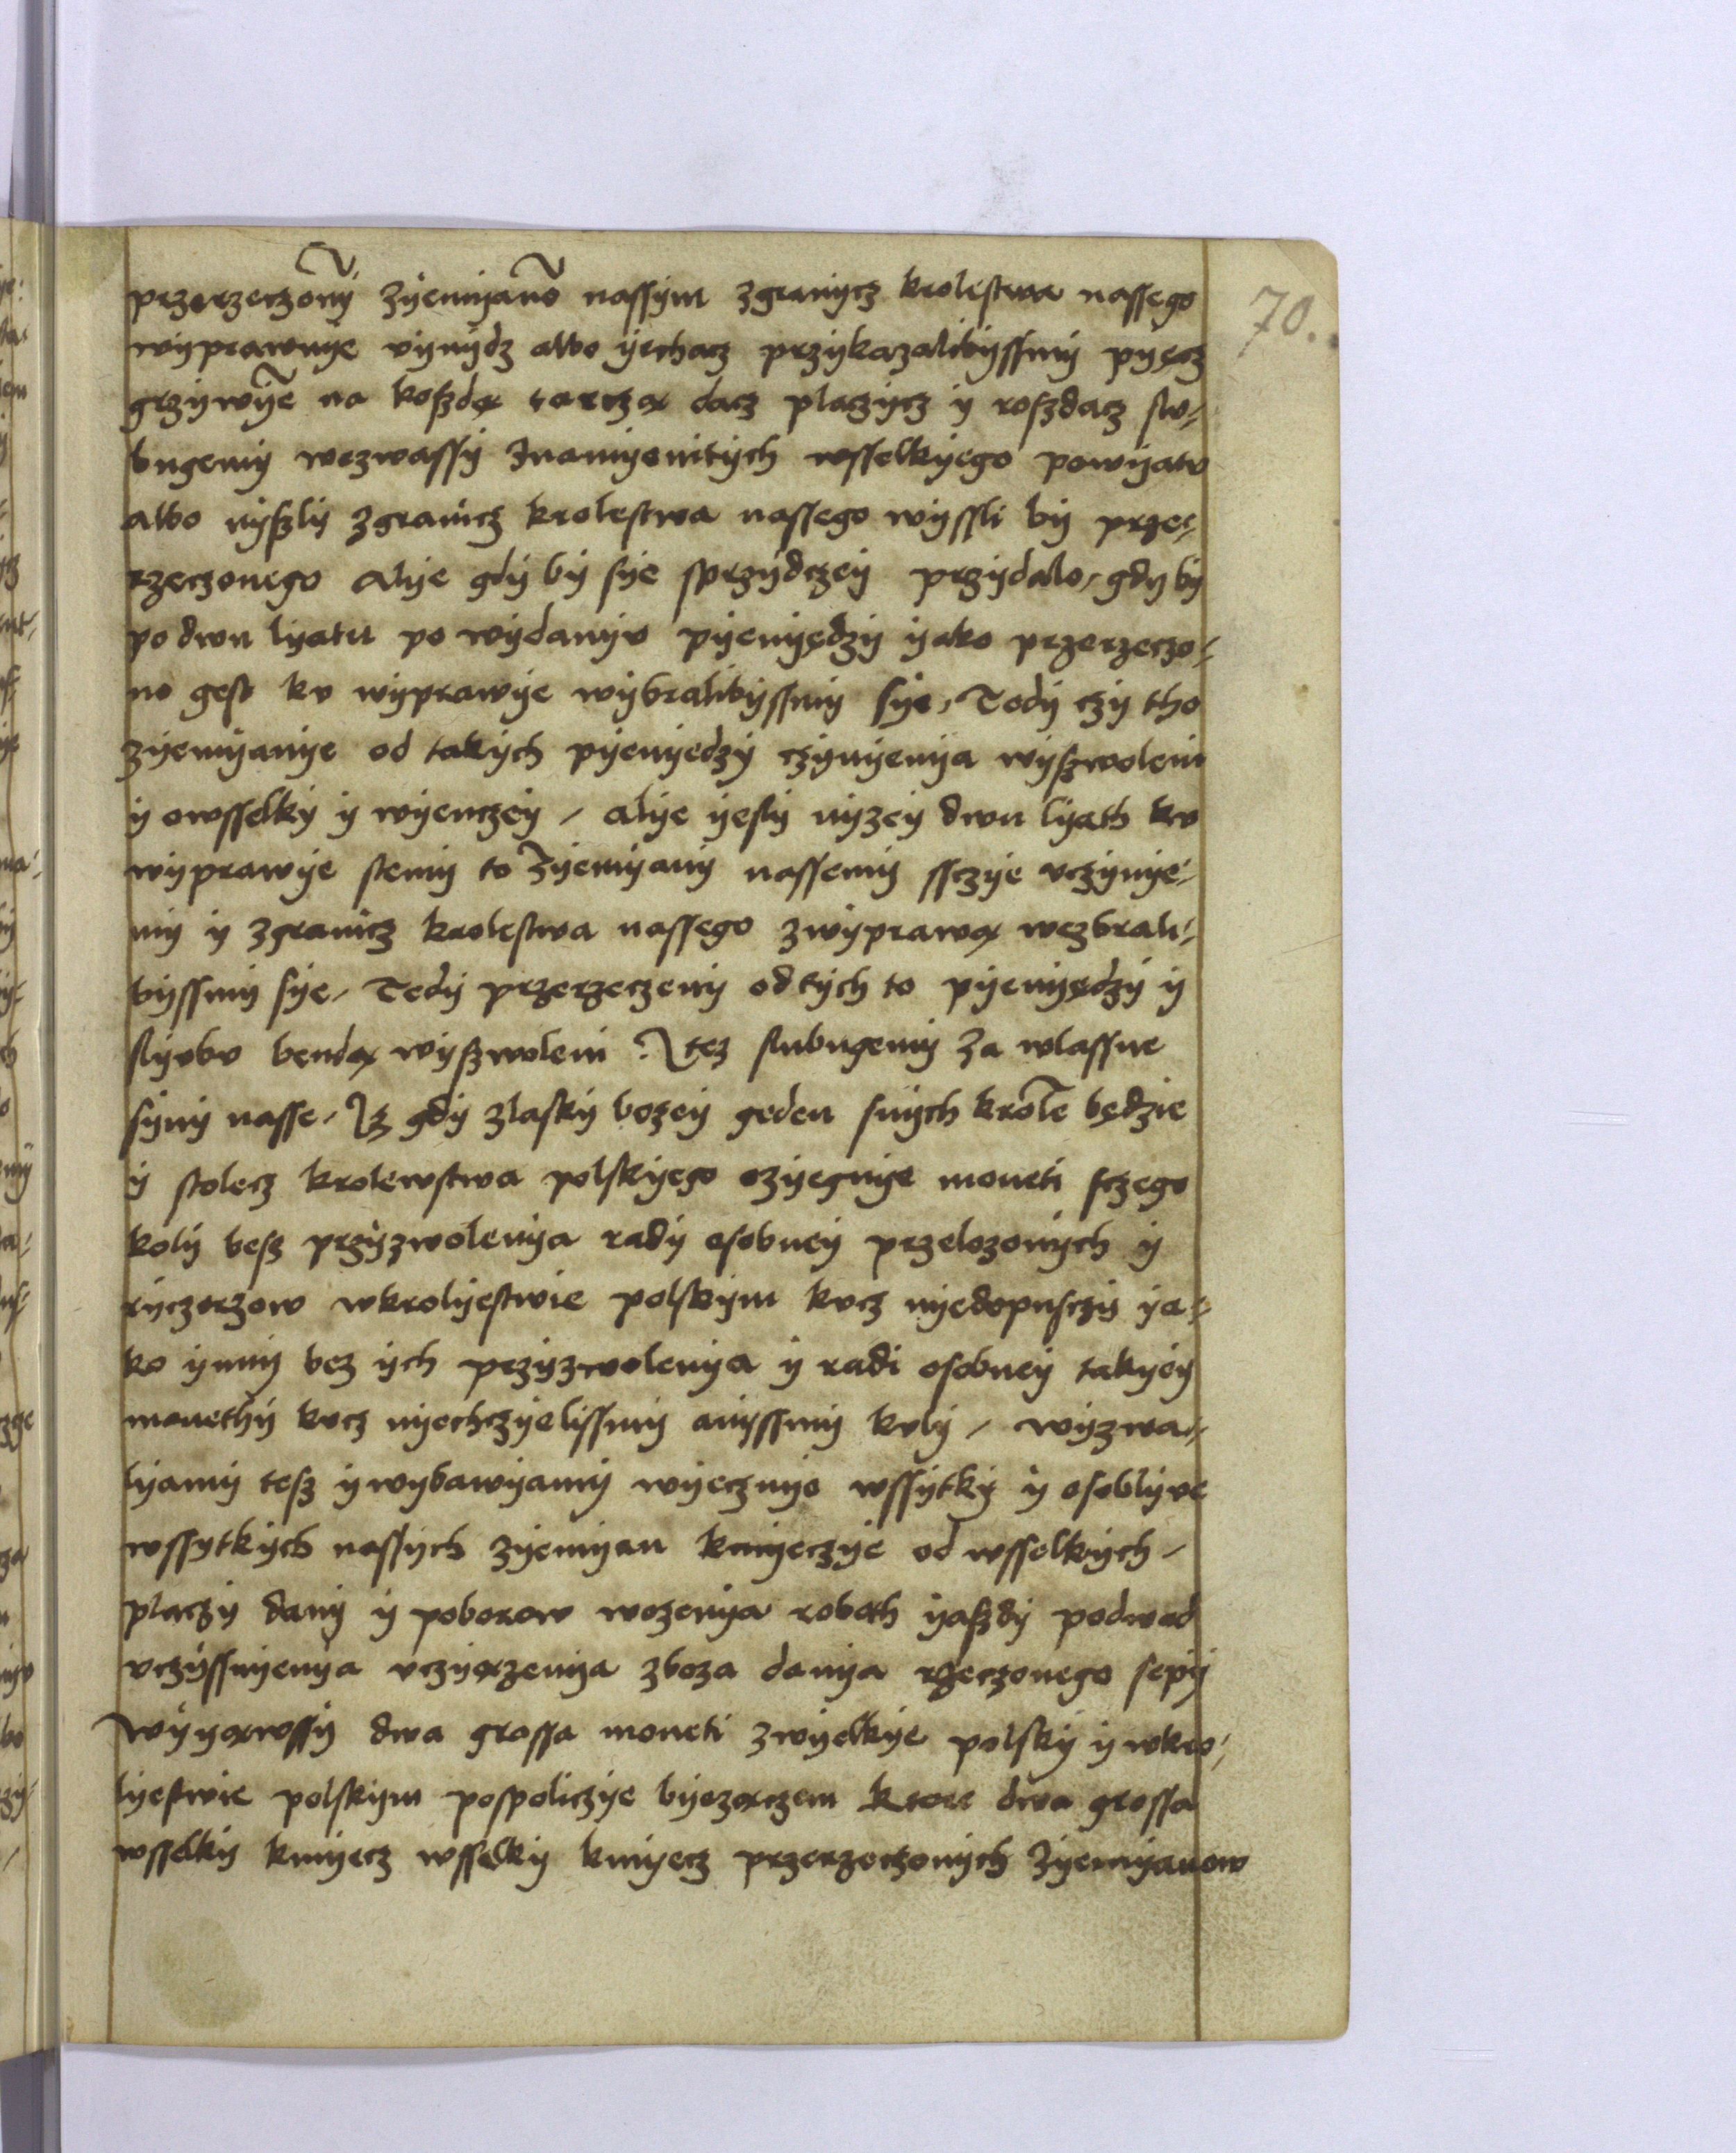 przerzeczony zyemyano nassym zgranycz krolestwa nassego
wyprawnye vynydz albo yechacz przykazalibyssmy pyęcz
grzywye na koszdą tarczą dacz placzycz y roszdacz slu-
bugemy wezwassy znamyenitych wsselkyego powyatv
albo nyszly zgranicz krolestwa nassego wyssli by prze-
rzeczonego alye gdy by sye sprzydczey przydalo, gdy by
po dwu lyatu po wydanyv pyenyędzy yako przerzeczo-
no gest kv wyprawye wybralibyssmy sye, Tedy czy tho
zyemyanye od takych pyenyedzy czynyenya wyszwoleni
y owsselky y wyenczey / alye yesly nyzey dwu lyath kv
wyprawye stemy to zyemyany nassemy sczye vczynye-
my y zgranicz krolestwa nassego zwyprawą wezbrali-
byssmy sye, Tedy przerzeczeny od tych to pyenyędzy y
slyvbv bendą wyszwoleni Item slubugemy za wlassne
syny nasse, Iz gdy zlasky bozey geden snych krole będzie
y stolecz krolewstwa polskyego ozyegnye moneti sczego
koly besz przyzwolenya rady osobney przelozonych y
ryczerzow wkrolyestwie polskym kvcz nyedopusczy ya-
ko ynny bez ych przyzwolenya y radi osobney takyey
monethy kvcz nyechczyelissmy anyssmy kvly / wyzwa-
lyamy tesz y wybawyamy wyecznye wssytky y osoblyve
wssytkych nassych zyemyan kmyeczye od wsselkych /
placzy dany y poborow wozenya roboth yaszdy podwod
vczyssnyenya vczyązenya zboza danya rzeczonego sepy
wyyąwssy dwa grossa moneti zwyelkye polsky y wkro-
lyestwie polskym pospoliczye byezączem ktore dwa grossa
wsselky kmyecz wsselky kmyecz przerzeczonych zyemyanow
70.